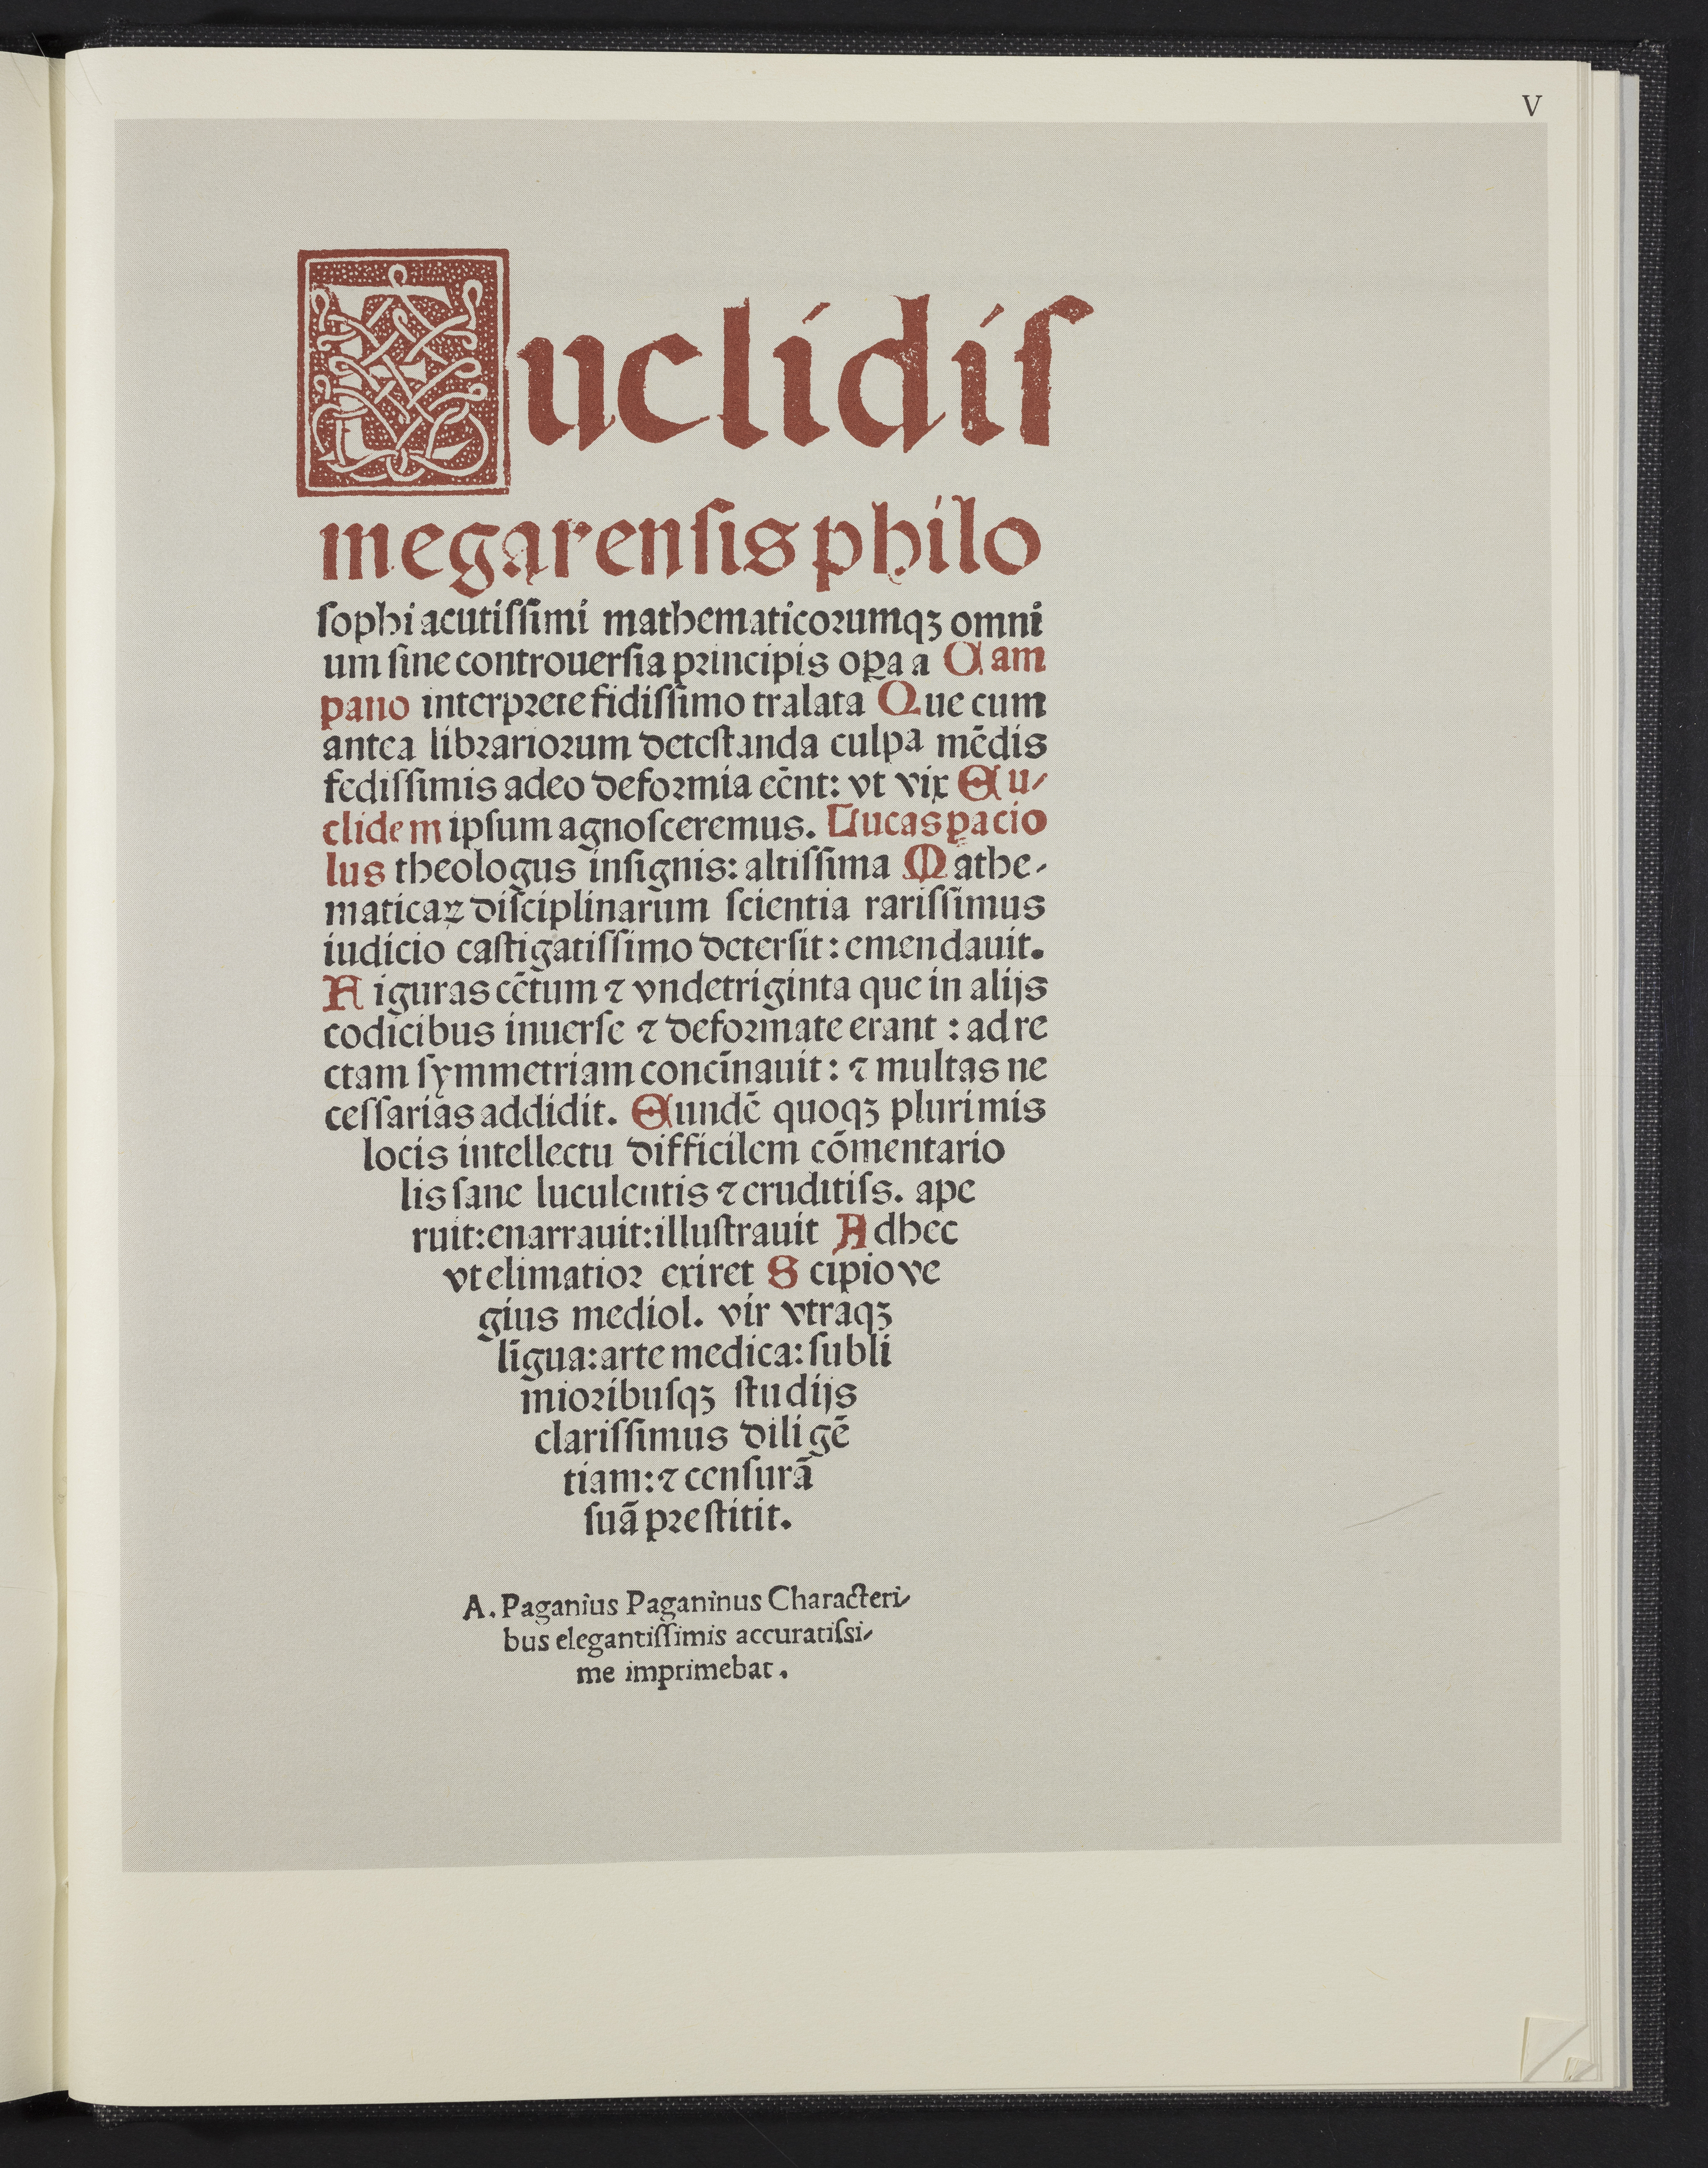 V
Euclidiſ
megarenſis philo
ſophi acutiſſimi mathematicorumqꝫ omni
um ſine controuerſia principis oꝑa a Cam
pano interprete fidiſſimo tralata Que cum
antea librariorum deteſtanda culpa mẽdis
fediſſimis adeo deformia eẽnt: vt vix Eu⸗
clidem ipſum agnoſceremus. Lucas pacio
lus theologus inſignis: altiſſima Mathe⸗
maticaꝝ diſciplinarum ſcientia rariſſimus
iudicio caſtigatiſſimo deterſit: emendauit.
Figuras cẽtum ⁊ vndetriginta que in alijs
codicibus inuerſe ⁊ deformate erant: ad re
ctam ſymmetriam concĩnauit: ⁊ multas ne
ceſſarias addidit. Eundẽ quoqꝫ plurimis
locis intellectu difficilem cõmentario
lis ſane luculentis ⁊ eruditiſs. ape
ruit: enarrauit: illuſtrauit Adhec
vt elimatior exiret Scipio ve
gius mediol. vir vtraqꝫ
lĩgua: arte medica: ſubli
mioribuſqꝫ ſtudijs
clariſſimus diligẽ
tiam: ⁊ cenſurã
ſuã preſtitit.
A. Paganius Paganinus Characteri⸗
bus elegantiſſimis accuratiſsi⸗
me imprimebat.